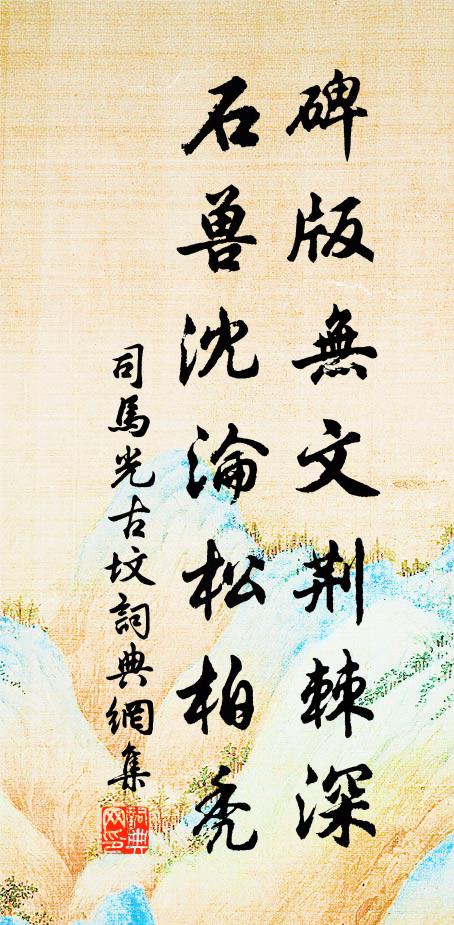 碑版無文荆棘深
石兽沈淪松柏秃
司馬光古坟詞典網集
詞典网印